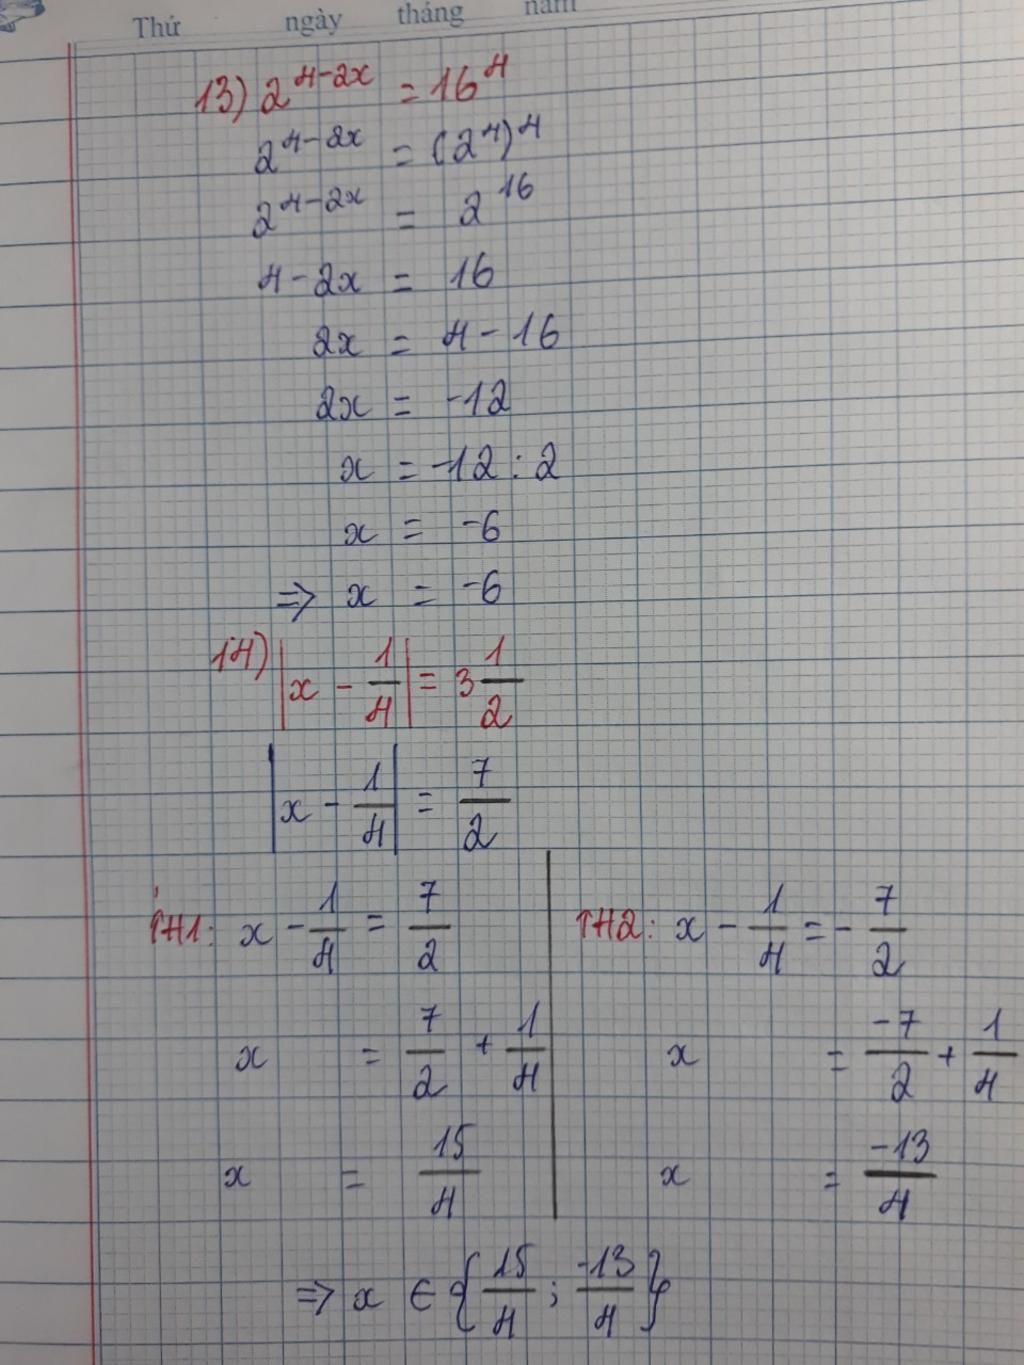 Thứ ngày tháng năm
13) 2^{4-2x} = 16^4
2^{4-2x} = (2^4)^4
2^{4-2x} = 2^{16}
4 - 2x = 16
2x = 4 - 16
2x = -12
x = -12 : 2
x = -6
⇒ x = -6
14) |x - 1/4| = 3 1/2
|x - 1/4| = 7/2
TH1: x - 1/4 = 7/2
x = 7/2 + 1/4
x = 15/4
TH2: x - 1/4 = - 7/2
x = -7/2 + 1/4
x = -13/4
⇒ x ∈ {15/4 ; -13/4}